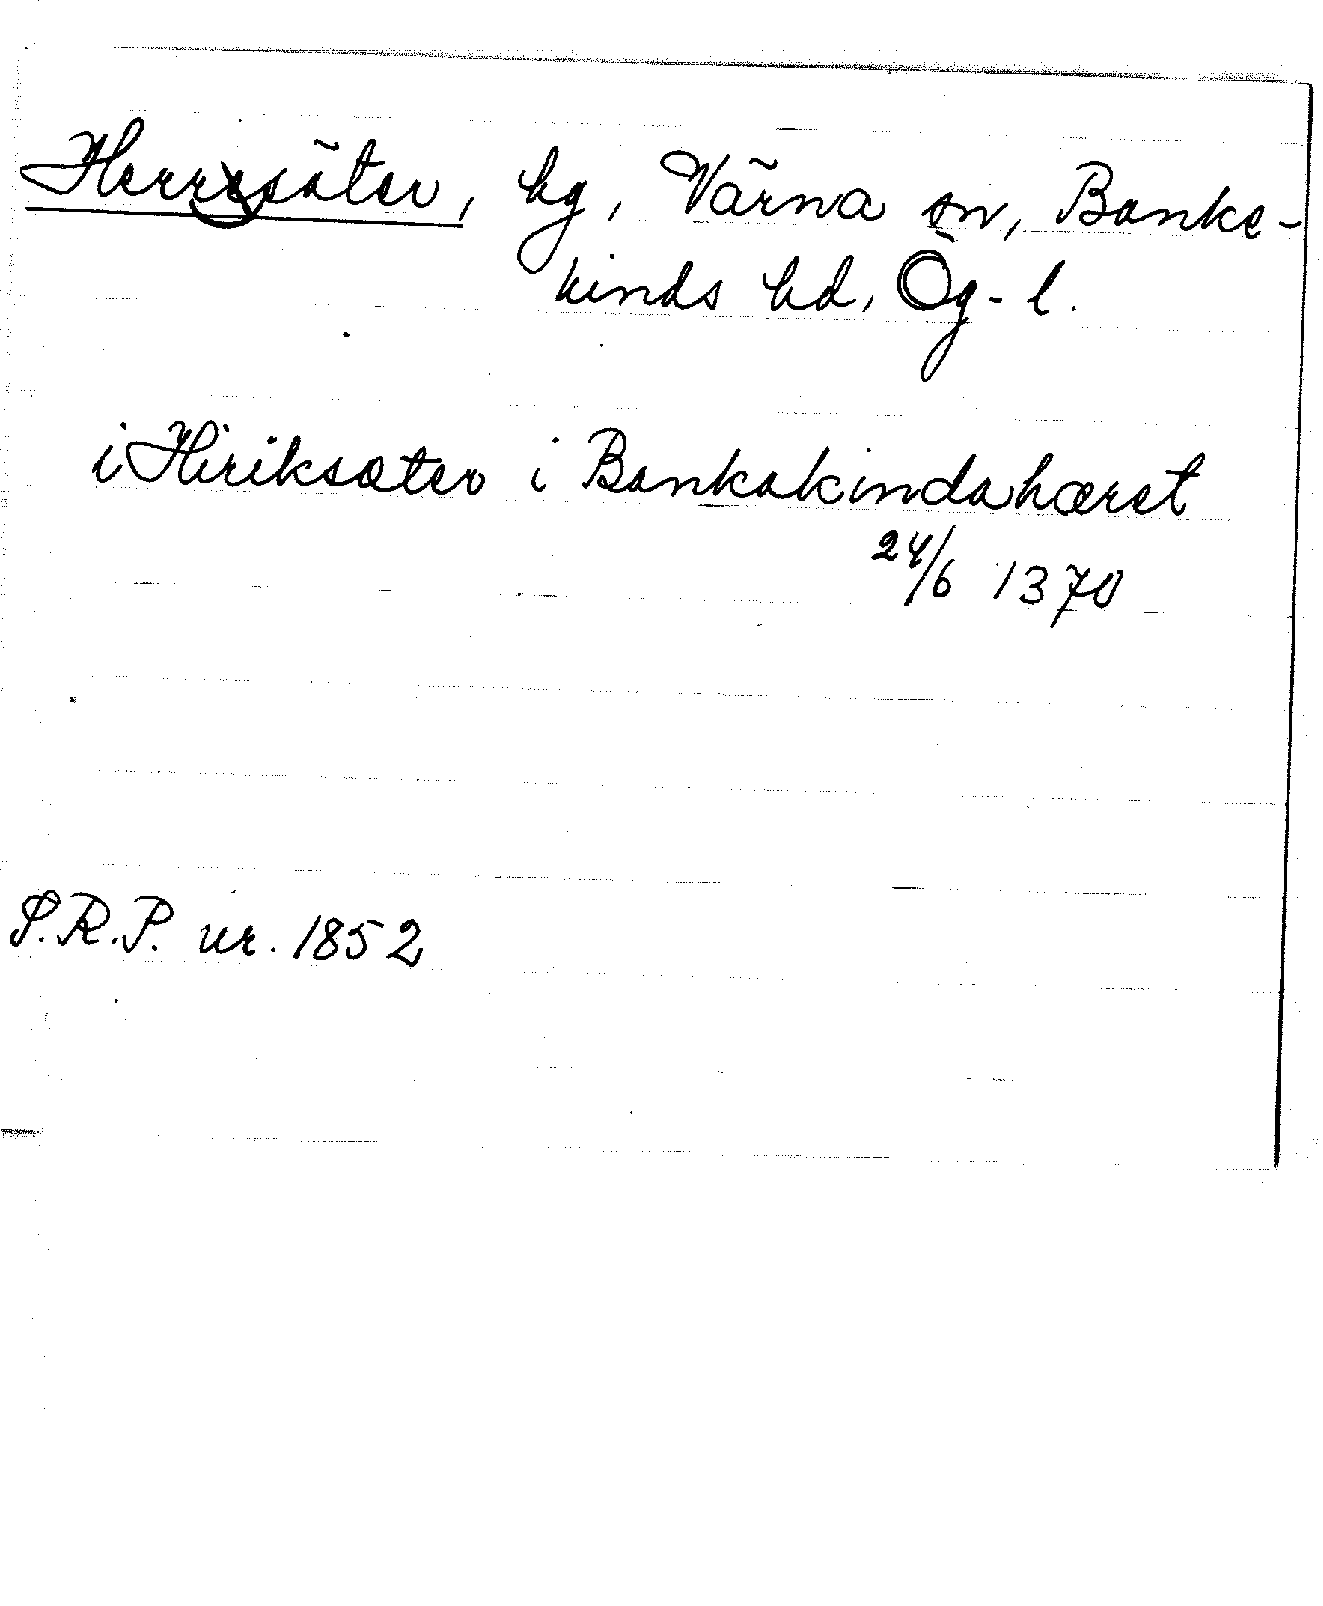 Herrsäter, hg, Värna sn, Banke-
kinds hd, Ög-l.
i Hiriksæter i Bankakindahæret
24/6 1370
S.R.P. nr. 1852